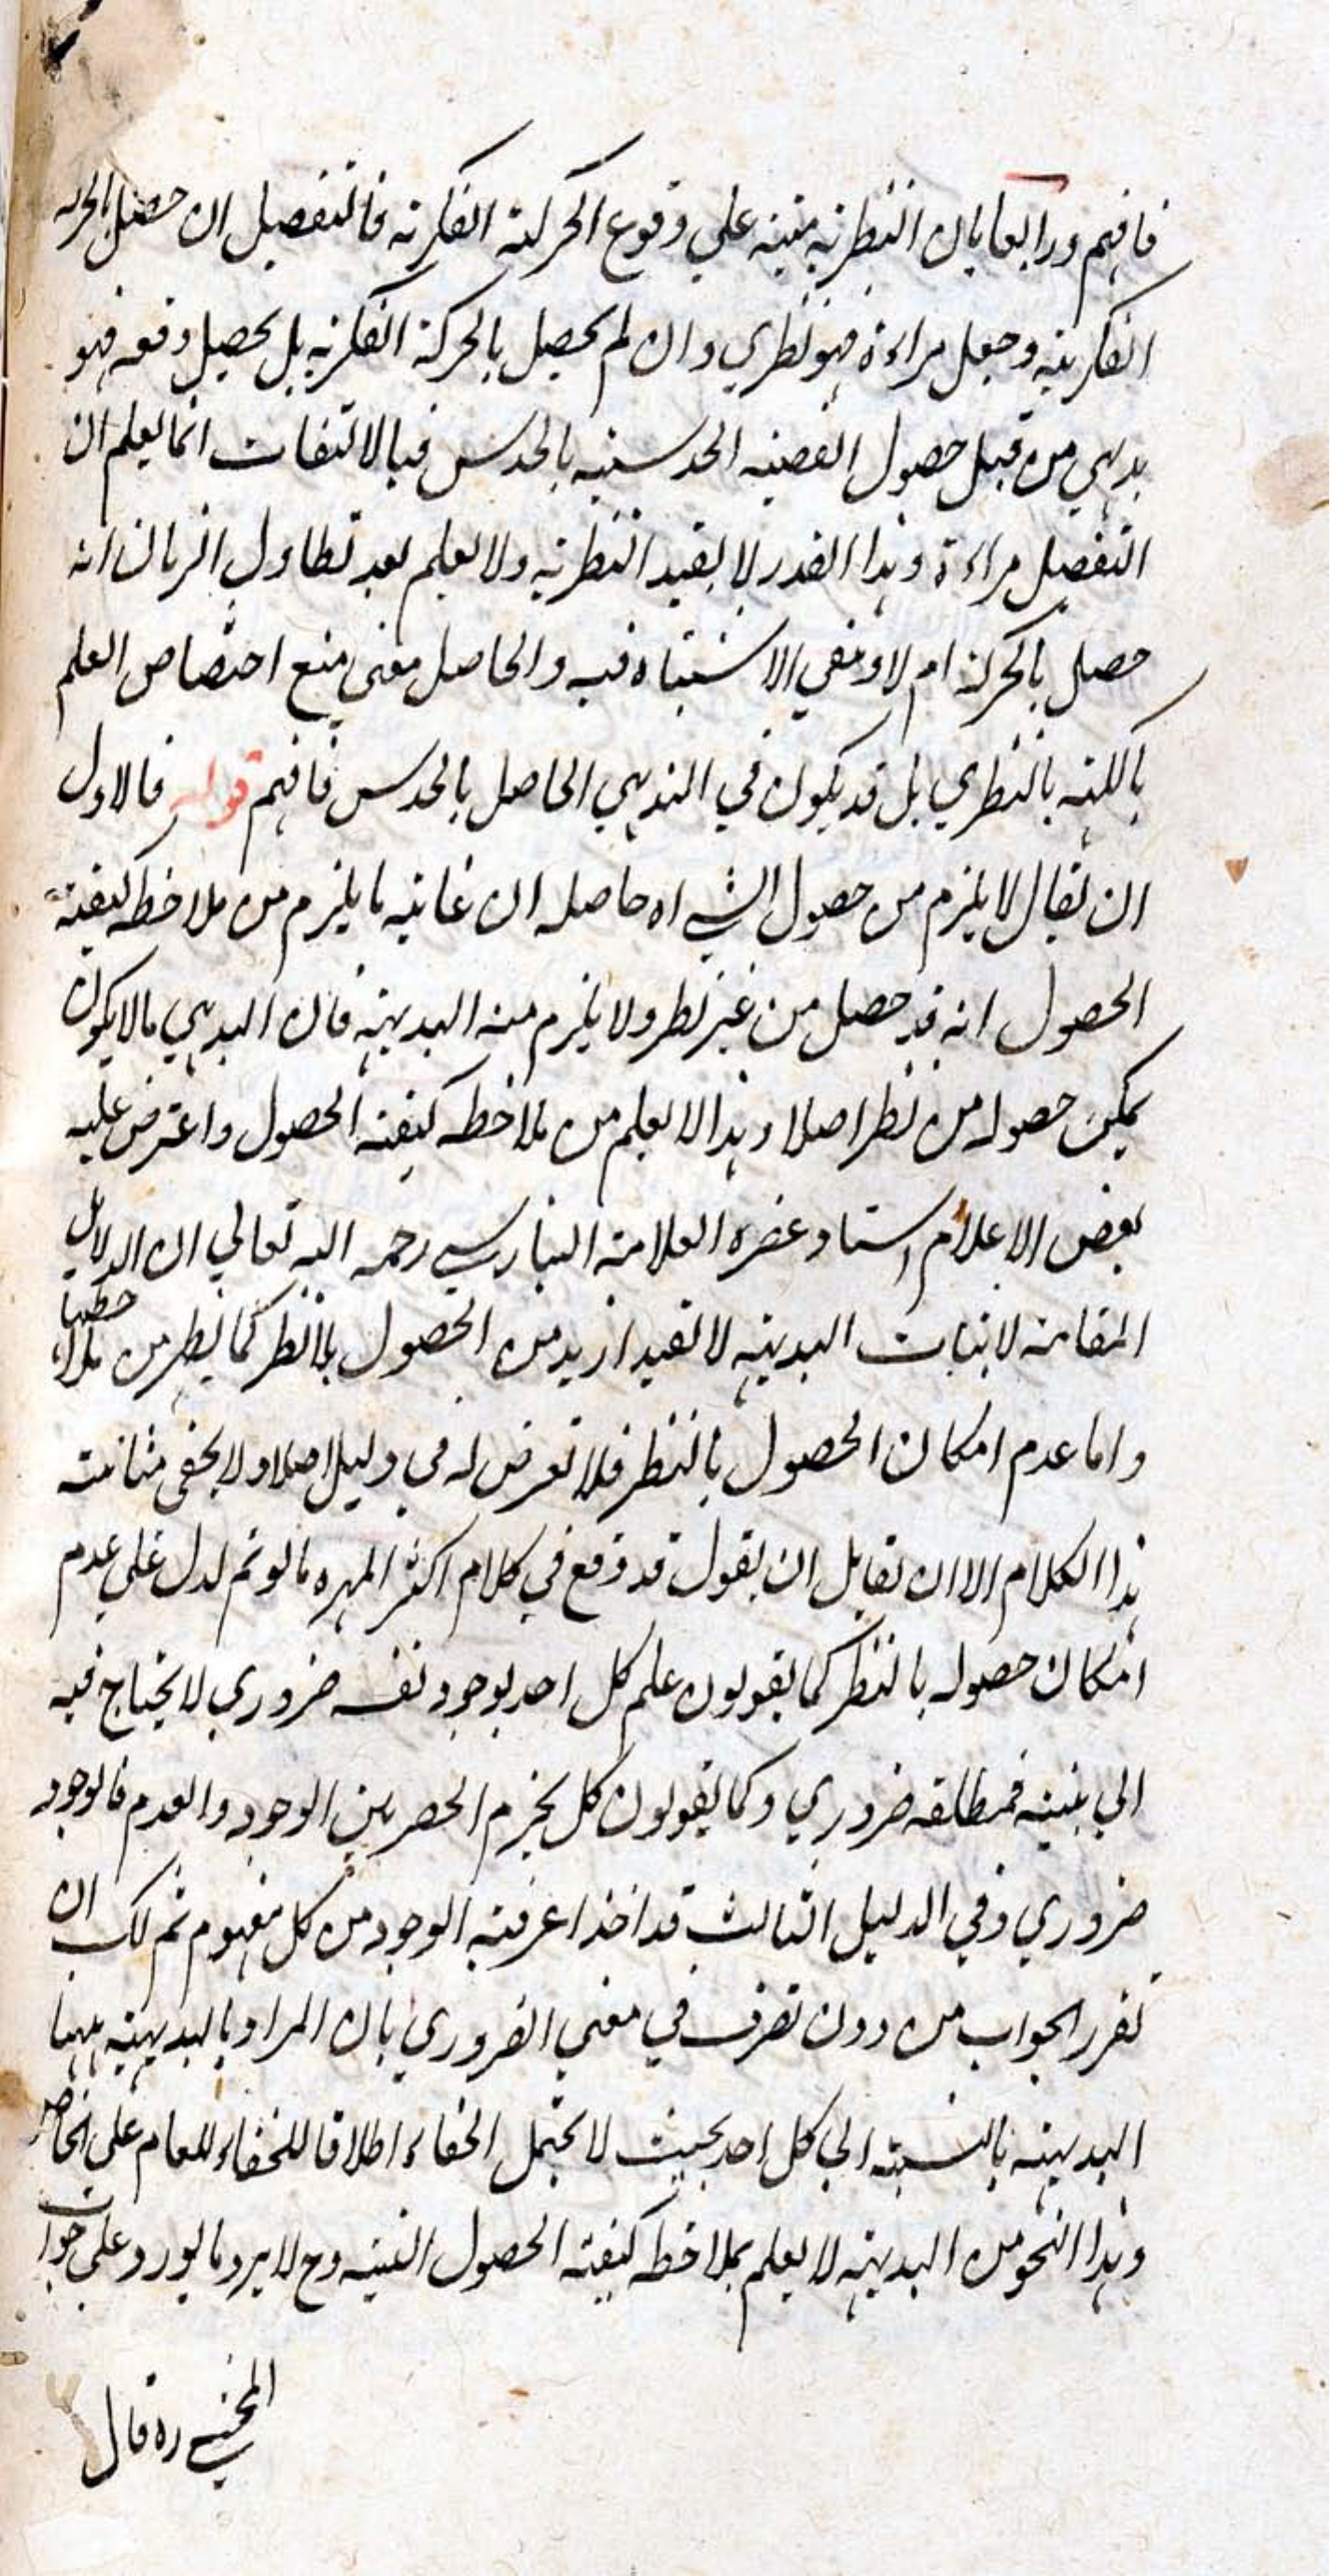 فافهم ورابعا بان النظرية مبنية علي وقوع الحركة الفكرية فالتفصيل ان حصل بالحركة
الفكرية وجعل مراءة فهو نظري وان لم يحصل بالحركة الفكرية بل يحصل دفعه فهو
بديهي من قبيل حصول القضية الحدسية بالحدس فبالالتفات انما يعلم ان
التفصيل مراءة وهذا القدر لا يفيد النظرية ولا يعلم بعد تطاول الزمان انه
حصل بالحركة ام لا و الاشتباه فيه والحاصل معني منع اختصاص العلم
بالنظري بل قد يكون في البديهي الحاصل بالحدس فافهم قوله فالاول
ان يقال لا يلزم من حصول الشي اه حاصله ان غاية ما يلزم من ملاحظة كيفية
الحصول انه قد حصل من غير نظر ولا يلزم منه البديهية فان البديهي ما لا يكون
يمكن حصوله من نظر اصلا وهذا لا يعلم من ملاحظة كيفية الحصول واعترض عليه
بعض الاعلام استاد عصره العلامة البنارسي رحمه الله تعالي ان الدلايل
المقامة لاثبات البديهية لا تفيد ازيد من الحصول بلا نظر كما يظهر من ملاحظتها
واما عدم امكان الحصول بالنظر فلا تعرض له في دليل اصلا ولا يخفي متانته
هذا الكلام الا ان لقايل ان يقول قد وقع في كلام اكثر المهره ما لو تم لدل علي عدم
امكان حصوله بالنظر كما يقولون علم كل احد بوجود نفسه ضروري لا يحتاج فيه
الي بنية فمطلقه ضروري وكما يقولون كل يجزم الحصر بين الوجود والعدم فالوجود
ضروري وفي الدليل الثالث قد اخذ اعرفية الوجود من كل مفهوم ثم لك ان
تقرر الجواب من دون تصرف في معني الضروري بان المراد بالبديهية ههنا
البديهية بالنسبة الي كل احد بحيث لا يحتمل الخفاء اطلاقا للعام علي الخاص
وهذا النحو من البديهية لا يعلم بملاحظة كيفية الحصول البتة وح لا يرد ما يورد علي جواب
المحشي ره قال